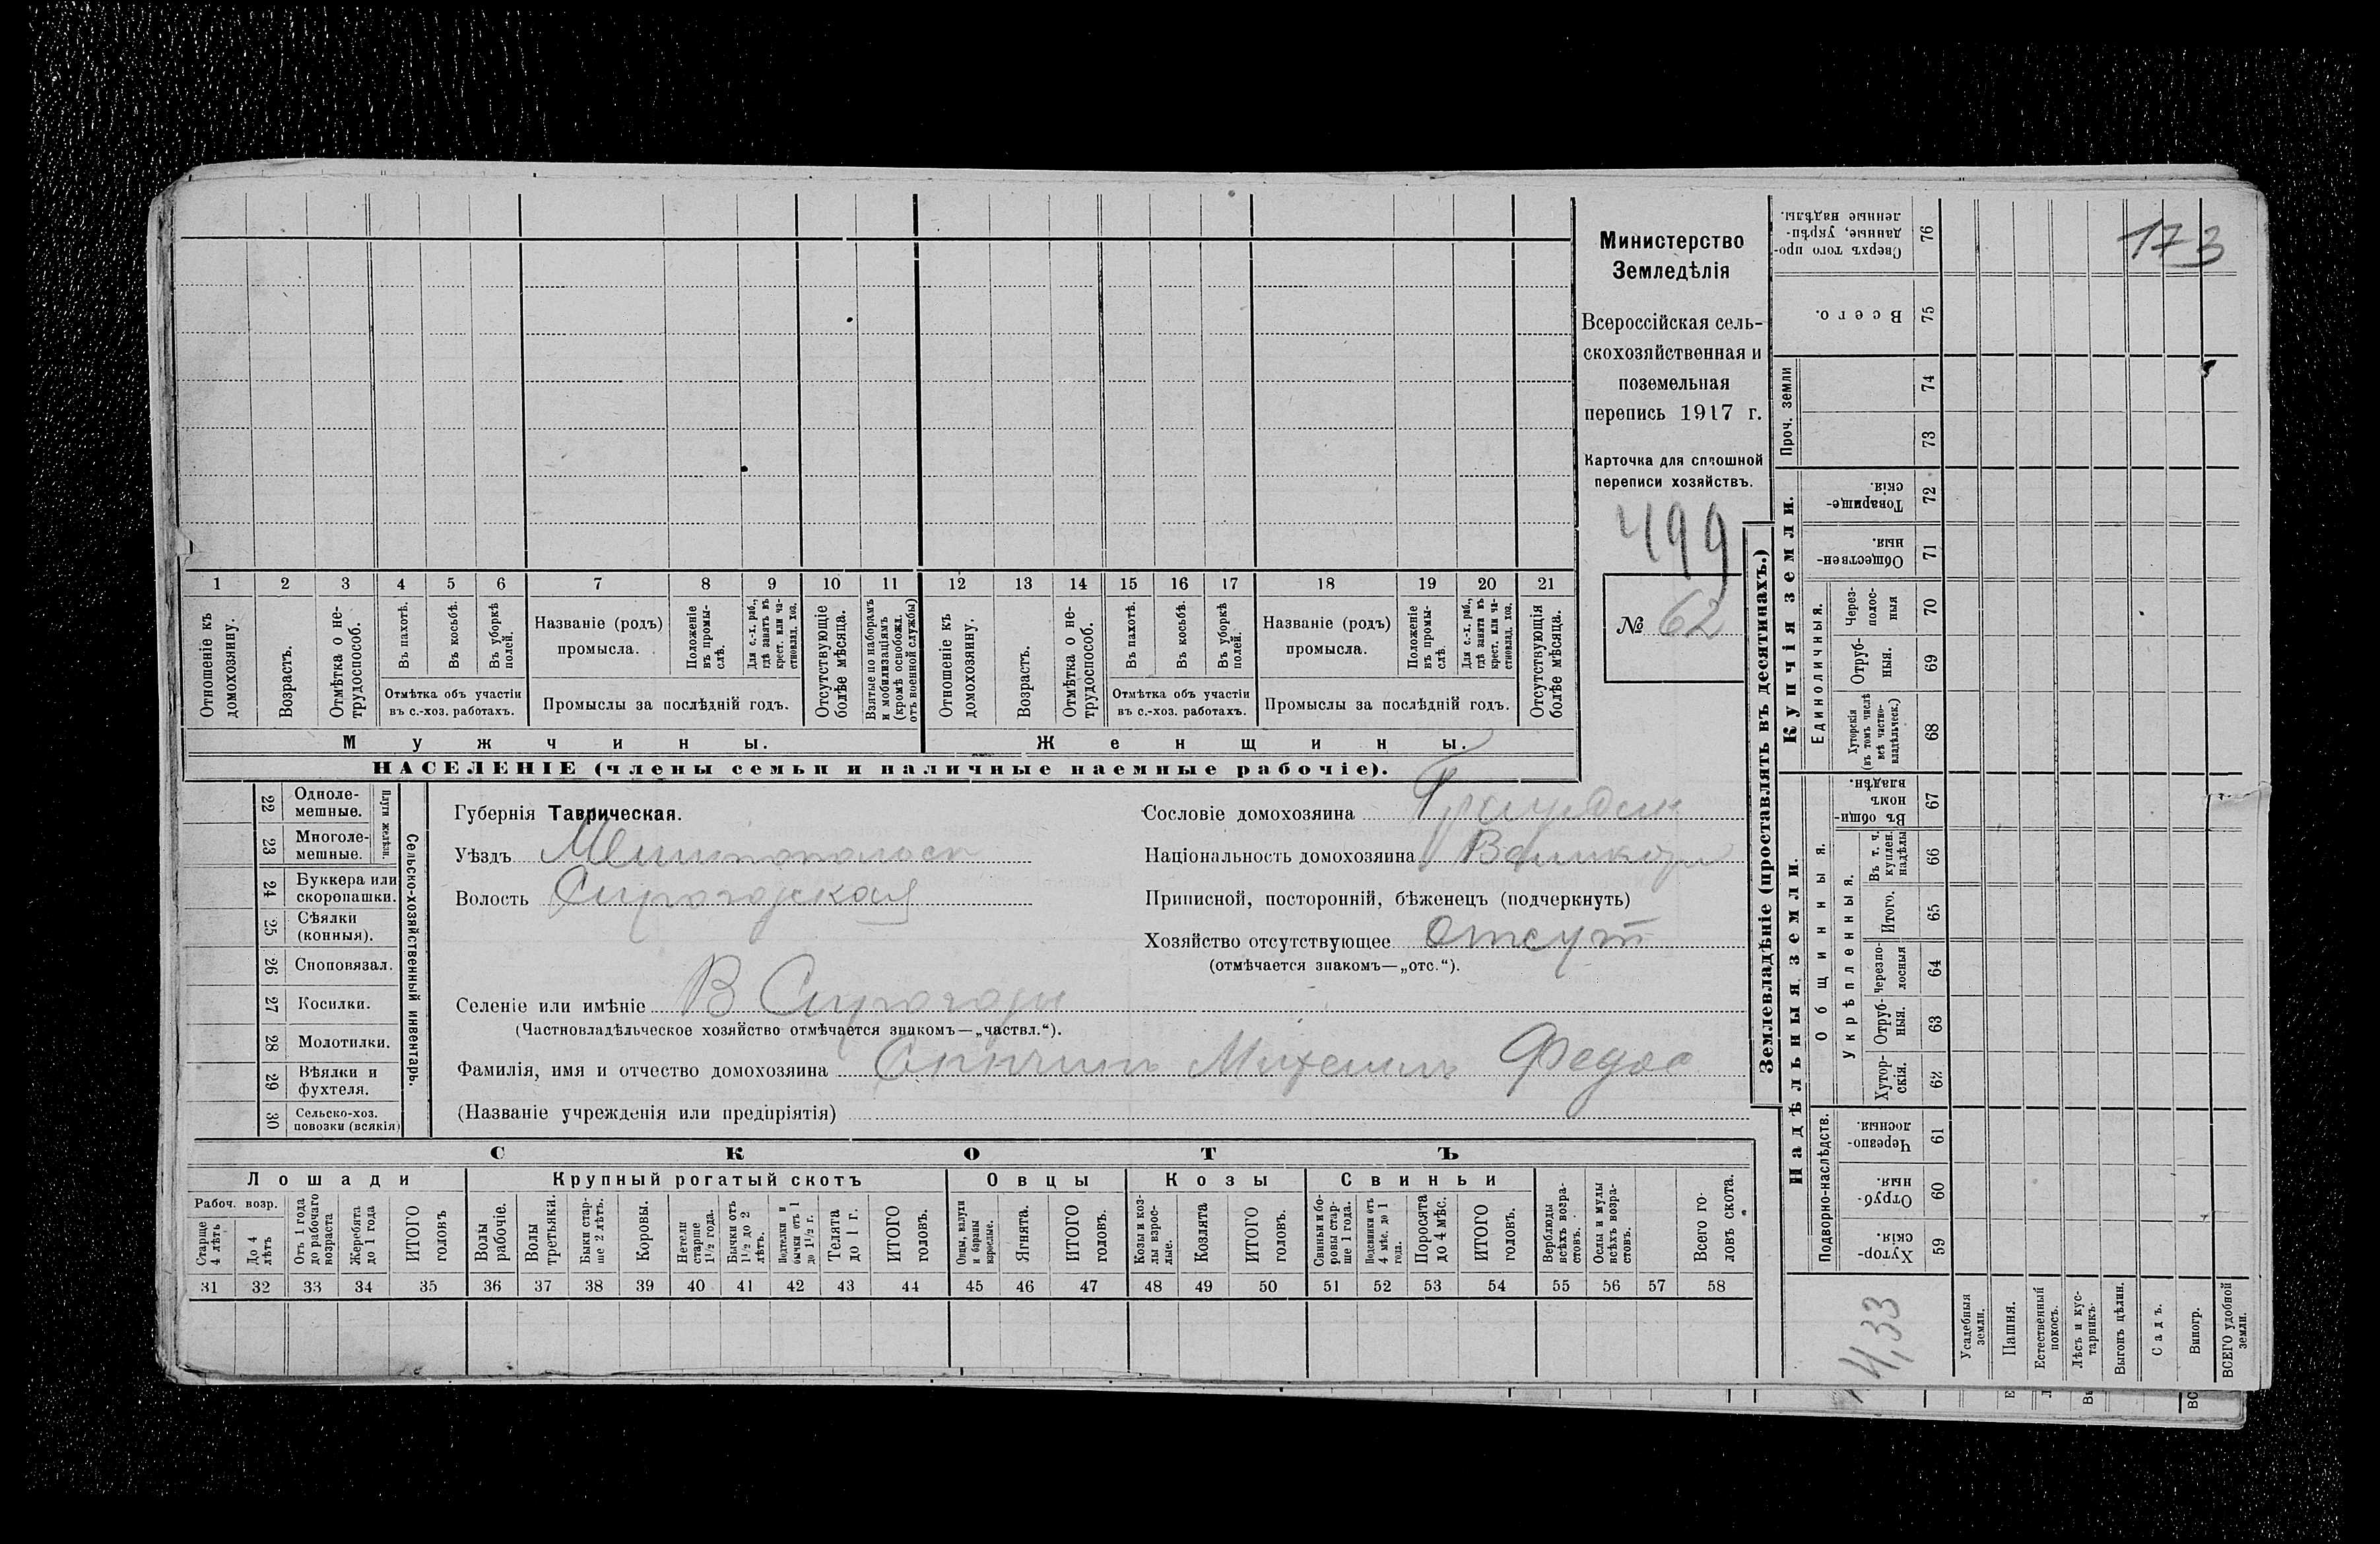 173
Министерство
Земледѣлія
Всероссійская сель-
скохозяйственная и
поземельная
перепись 1917 г.
Карточка для сплошной
переписи хозяйствъ.
499
№ 62
1 2 3 4 5 6 7 8 9 10 11 12 13 14 15 16 17 18 19 20 21
Отношеніе къ домохозяину.
Возрастъ.
Отмѣтка о не-трудоспособ.
Въ пахотѣ.
Въ косьбѣ.
Въ уборкѣ полей.
Отмѣтка объ участіи
въ с.-хоз. работахъ.
Названіе (родъ)
промысла.
Положеніе въ промы-слѣ.
Для с.-х. раб., гдѣ занятъ въ крест. или ча-стновлад. хоз.
Промыслы за послѣдній годъ.
Отсутствующіе болѣе мѣсяца.
Взятые по наборамъ и мобилизаціямъ (кромѣ освобожд. отъ военной службы)
Отношеніе къ домохозяину.
Возрастъ.
Отмѣтка о не-трудоспособ.
Въ пахотѣ.
Въ косьбѣ.
Въ уборкѣ полей.
Отмѣтка объ участіи
въ с.-хоз. работахъ.
Названіе (родъ)
промысла.
Положеніе въ промы-слѣ.
Для с.-х. раб., гдѣ занята въ крест. или ча-стновлад. хоз.
Промыслы за послѣдній годъ.
Отсутствующія болѣе мѣсяца.
Мужчины.
Женщины.
НАСЕЛЕНІЕ (члены семьи и наличные наемные рабочіе).
Сельско-хозяйственный инвентарь.
Плуги желѣзн.
22 Одноле-мешные.
23 Многоле-мешные.
24 Буккера или скоропашки.
25 Сѣялки (конныя).
26 Сноповязал.
27 Косилки.
28 Молотилки.
29 Вѣялки и фухтеля.
30 Сельско-хоз. повозки (всякія)
Губернія Таврическая.
Уѣздъ
Волость Сирогозская
Селеніе или имѣніе В Сирогозы
(Частновладѣльческое хозяйство отмѣчается знакомъ—„частвл.“).
Фамилія, имя и отчество домохозяина Михаилъ Федос
(Названіе учрежденія или предпріятія)
Сословіе домохозяина
Національность домохозяина Великор
Приписной, посторонній, бѣженецъ (подчеркнуть)
Хозяйство отсутствующее Отсут
(отмѣчается знакомъ—„отс.“).
СКОТЪ
Лошади
Крупный рогатый скотъ
Овцы
Козы
Свиньи
Рабоч. возр.
Старше 4 лѣтъ
До 4 лѣтъ
Отъ 1 года до рабочаго возраста
Жеребята до 1 года
ИТОГО головъ
Волы рабочіе.
Волы третьяки.
Быки стар-ше 2 лѣтъ.
Коровы.
Нетели старше 1 1/2 года.
Бычки отъ 1 1/2 до 2 лѣтъ.
Подтелки и бычки отъ 1 до 1 1/2 г.
Телята до 1 г.
ИТОГО головъ.
Овцы, валухи и бараны взрослые.
Ягнята.
ИТОГО головъ.
Козы и коз-лы взрос-лые.
Козлята
ИТОГО головъ.
Свиньи и бо-ровы стар-ше 1 года.
Подсвинки отъ 4 мѣс. до 1 года.
Поросята до 4 мѣс.
ИТОГО головъ.
Верблюды всѣхъ возра-стовъ.
Ослы и мулы всѣхъ возра-стовъ.
Всего го-ловъ скота.
31 32 33 34 35 36 37 38 39 40 41 42 43 44 45 46 47 48 49 50 51 52 53 54 55 56 57 58
Землевладѣніе (проставлять въ десятинахъ.)
Надѣльныя земли.
Купчія земли.
Проч. земли
Подворно-наслѣдств.
Общинныя.
Укрѣпленныя.
Единоличныя.
Хутор-скія. 59
Отруб-ныя. 60
Черезпо-лосныя. 61
Хутор-скія. 62
Отруб-ныя. 63
Черезпо-лосныя 64
Итого. 65
Въ т. ч. куплен. надѣлы 66
Въ общи-номъ владѣн. 67
Хуторскія (въ томъ числѣ всѣ частно-владѣльческ.) 68
Отруб-ныя. 69
Через-полос-ныя 70
Обществен-ныя. 71
Товарище-скія. 72
73
74
Всего. 75
Сверхъ того про-данные, укрѣп-ленные надѣлы. 76
4,33
Усадебныя земли.
Пашня.
Естественный покосъ.
Лѣсъ и кус-тарникъ.
Выгонъ цѣлин.
Садъ.
Виногр.
ВСЕГО удобной земли.